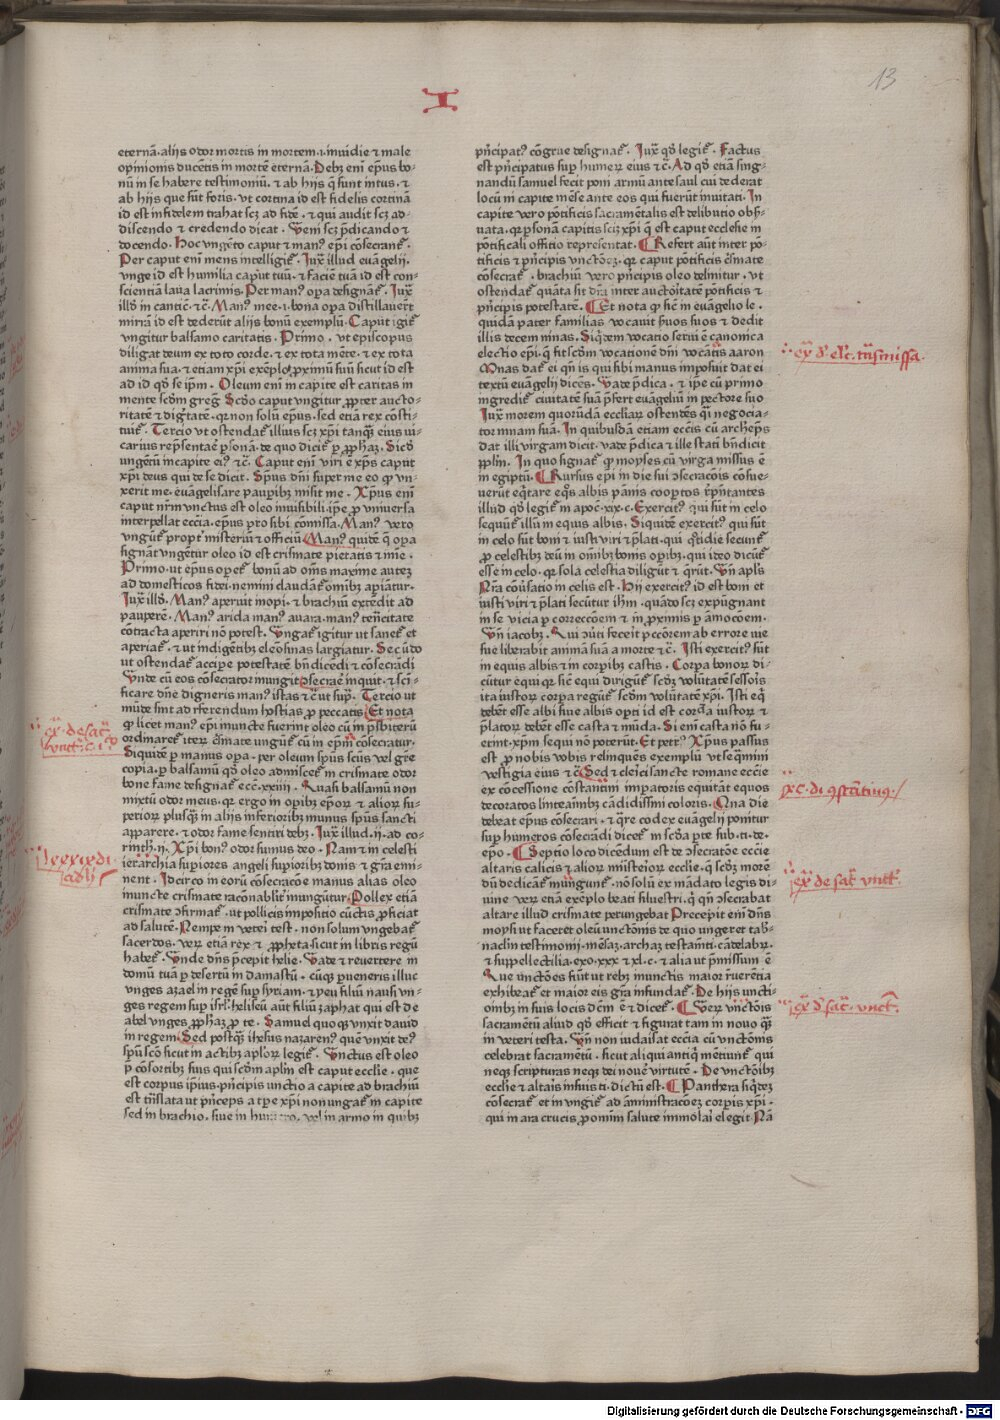 13
I
eternā. alijs odor mortis in mortem .i. inuidie ⁊ male
opinionis ducētis in mortē eternā. Debʒ enī ep̄us bo⸗
nū in se habere testimoniū. ⁊ ab hijs q̄ sunt intus. ⁊
ab hijs que sūt foris. vt cortina id est fidelis cortinā
id est infidelem trahat scʒ ad fidē. ⁊ qui audit scʒ ad⸗
discendo ⁊ credendo dicat. Veni scʒ p̄dicando ⁊
docendo. Hoc vngēto caput ⁊ manꝰ ep̄i cōsecrant᷑.
Per caput enī mens intelligit᷑. Iux̄ illud euāgelij.
vnge id est humilia caput tuū. ⁊ faciē tuā id est con⸗
scientiā laua lacrimis. Per manꝰ opa designāt᷑. Iux̄
illđ in cantic̄. ⁊c̄. Manꝰ mee .i. bona opa distillauer̄t
mirrā id est dederūt alijs bonū exemplū. Caput igit᷑
vngitur balsamo caritatis. Primo. vt episcopus
diligat deum ex toto corde. ⁊ ex tota mēte. ⁊ ex tota
anima sua. ⁊ etiam xp̄i exēplo ꝓximū suū sicut id est
ad id qđ se ip̄m. Oleum enī in capite est caritas in
mente scđm greḡ. Scđo caput vngitur ꝓpter aucto⸗
ritatē ⁊ diḡtatē. qr non solū ep̄us. sed etiā rex cōsti⸗
tuit᷑. Tercio vt ostendat᷑ illius scʒ xp̄i tanqȝ eius ui⸗
carius rep̄sentaē ꝑsonā. de quo dicit᷑ ꝑ ꝓphaʒ. Sicđ
ungētū in capite eiꝰ ⁊c̄. Caput enī viri ē xp̄s caput
xp̄i deus qui de se dicit. Sp̄us dn̄i super me eo ꝙ vn⸗
xerit me. euāgelisare paupībʒ misit me. Xp̄us enī
caput nr̄m vnctus est oleo inuisibili. ip̄e ꝓ vniuersa
interpellat eccīa. ep̄us pro sibi cōmissa. Manꝰ vero
vngūt᷑ propt᷑ misteriū ⁊ officiū. Manꝰ quidē q̄ opa
signāt vngētur oleo id est crismate pietatis ⁊ mīe.
Primo. ut ep̄us opet᷑ bonū ad om̄s maxime auteʒ
ad domesticos fidei. nemini claudāt᷑ om̄ibʒ apiāntur.
Iux̄ illđ. Manꝰ aperuit inopi. ⁊ brachiū extēdit ad
pauperē. Manꝰ arida manꝰ auara. manꝰ tenacitate
cōtracta aperiri nō potest. Vngāt᷑ igitur ut sanet᷑ et
aperiāt᷑. ⁊ ut indigētibʒ elēosinas largiatur. Secūdo
ut ostendat᷑ accipe potestatē bn̄dicēdi ⁊ cōsecrādi
Vnde cū eos cōsecrator mungit ↄsecrāe inquit. ⁊ scī⸗
ficare dn̄e digneris manꝰ istas ⁊c̄ ut supͬ. Tercio ut
mūde sint ad offerendum hostias ꝓ peccatis. Et nota
ꝙ licet manꝰ ep̄i inuncte fuerint oleo cū in p̄sbiterū
ordinaret᷑ iterꝝ c̄smate vngūt᷑ cū in ep̄m cōsecratur.
Siquidē ꝑ manus opa. per oleum sp̄us sc̄us vel gr̄e
copia. ꝑ balsamū qđ oleo admiscet᷑ in crismate odor
bone fame designat᷑ ecc̄. xxiiii. Quasi balsamū non
mixtū odor meus. qr ergo in opibʒ ep̄oꝝ ⁊ alioꝝ su⸗
perioꝝ plusqȝ in alijs inferioribʒ munus sp̄us sancti
apparere. ⁊ odor fame sentiri debʒ. Iux̄ illud .ij. ad co⸗
rinth. ij. Xp̄i bonꝰ odor sumus deo. Nam ⁊ in celesti
ierarchia supiores angeli supioribʒ donis ⁊ gr̄a emi⸗
nent. Idcirco in eorū cōsecracōe manus alias oleo
inuncte crismate racōnabilit᷑ inungūtur. Pollex etiā
crismate ↄfirmat᷑. ut pollicis impositio cūctis ꝓficiat
ad salutē. Nempe in veteri test. non solum vngebat᷑
sacerdos. verꝝ etiā rex ⁊ ꝓpheta. sicut in libris regū
habet᷑. Vnde dn̄s p̄cepit helie. Vade ⁊ reuertere in
domū tuā ꝑ desertū in damascū. cūqȝ ꝑueneris illuc
vnges azael in regē sup syriam. ⁊ yeu filiū nausi vn⸗
ges regem sup isrl̄. heliseū aūt filiū zaphat qui est de
abel vnges ꝓphaʒ ꝓ te. Samuel quoqȝ vnxit dauid
in regem. Sed postqȝ ihesus nazarenꝰ quē vnxit deꝰ
sp̄u sc̄o sicut in actibʒ apl̄oꝝ legit᷑. Vnctus est oleo
p̄ cōsortibʒ suis qui scđm apl̄m est caput eccl̄ie. que
est corpus ip̄ius. p̄ncipis unctio a capite ad brachiū
est trn̄slata ut p̄nceps a tp̄e xp̄i non ungat᷑ in capite
sed in brachio. siue in humero. vel in armo in quibʒ
p̄ncipatꝰ cōgrue designat᷑. Iux̄ qđ legit᷑. Factus
est p̄ncipatus sup humerꝝ eius ⁊c̄. Ad qđ etiā sing⸗
nandū samuel fecit poni armū ante saul cui dederat
locū in capite mēse ante eos qui fuerūt inuitati. In
capite vero pōtificis sacramētalis est delibutio obſ̄⸗
uata. qr ꝑsonā capitis scʒ xp̄i q̄ est caput ecclesie in
pōtificali officio representat. Refert aūt inter pō⸗
tificis ⁊ p̄ncipis vnctōeʒ. qr caput pōtificis c̄smate
cōsecrat᷑. brachiū vero p̄ncipis oleo delinitur. vt
ostendat᷑ quāta sit dr̄a inter auctōitatē pōtificis ⁊
p̄ncipis potestatē. Et nota ꝙ sic̄ in euāgelio le.
quidā pater familias vocauit s̄uos suos ⁊ dedit
illis decem mnas. Siqͥdem vocatio seruī ē canonica
electio ep̄i. q̄ fit scđm vocationē dn̄i vocātis aaron
Mnas dat᷑ ei qn̄ is qui sibi manus imposuit dat ei
textū euāgelij dicēs. Vade p̄dica. ⁊ ip̄e cū primo
ingredit᷑ ciuitatē suā p̄fert euāgeliū in pectore suo
Iux̄ morem quorūdā eccl̄iaꝝ ostendēs qͥ negocia⸗
tor mnam suā. In quibusdā etiam eccīis cū archiep̄s
dat illi virgam dicit. vade p̄dica ⁊ ille statī bn̄dicit
ppl̄m. In quo signat᷑ ꝙ moyses cū virga missus ē
in egiptū. Rursus ep̄i in die sui ↄsecracōis cōsue⸗
uerūt eqͥtare eqͦs albis pānis cooptos r̄p̄ntantes
illud qđ legit᷑ in apoc̄. xix. c. Exercitꝰ qui sūt in celo
sequūt᷑ illū in equis albis. Siquidē exercitꝰ qui sūt
in celo sūt boni ⁊ iusti viri ⁊ p̄lati. qui qͦtidie secunt᷑
ꝓ celestibʒ deū in om̄ibʒ bonis opibʒ. qui ideo dicūt᷑
esse in celo. qr sola celestia diligūt ⁊ q̄rūt. Vn̄ apl̄s
Nr̄a cōuersatio in celis est. Hij exercitꝰ id est boni et
iusti viri ⁊ p̄lati secūtur ihm̄. quādo scʒ expūgnant
in se vicia ꝑ correccōem ⁊ in ꝓximis ꝑ āmocōem.
Vn̄ iacobꝫ. Qui ↄuti fecerit pccōrem ab errore uie
sue liberabit animā suā a morte ⁊c̄. Isti exercitꝰ sūt
in equis albis ⁊ in corpibʒ castis. Corpa bonoꝝ di⸗
cūtur equi qr sic̄ equi dirigūt᷑ scđm volūtatē sessoris
ita iustoꝝ corpa regūt᷑ scđm volūtatē xp̄i. Isti eqͥ
debēt esse albi siue albis opti id est corda iustoꝝ ⁊
p̄latoꝝ debēt esse casta ⁊ mūda. Si enī casta nō fu⸗
erint. xp̄m sequi nō poterūt. Et petrꝰ. Xp̄us passus
est ꝓ nobis vobis relinquēs exemplū vt seqͣmini
vestigia eius ⁊c̄. Sed ⁊ cleͥci sancte romane eccīe
ex cōcessione cōstantini impatoris equitāt equos
decoratos lintēaminibʒ cādidissimi coloris. Qua die
debeat ep̄us cōsecrari. ⁊ qͣre codex euāgelij ponitur
sup humeros cōsecrādi dicet᷑ in scđa pͣte sub .ti. de.
ep̄o. Septīo loco dicēdum est de ↄsecratōe eccīe
altaris calicis ⁊ alioꝝ minist᷑ioꝝ eccl̄ie. q̄ scđm morē
dū dedicāt᷑ inungunt᷑. nō solū ex mādato legis di⸗
uine verꝝ etiā exēplo beati siluestri. qͥ qn̄ ↄsecrabat
altare illud crismate perungebat. Precepit enī dn̄s
moysi ut faceret oleū unctōnis de quo ungeret tab̄⸗
naclm̄ testimonij. mēsaʒ. archaʒ testam̄ti. cādelabꝝ.
⁊ suppellectilia. exo. xxx ⁊ xl. c. ⁊ alia ut p̄missum ē
Que unctōes fiūt ut rebʒ inunctis maior r̄uerētia
exhibeat᷑ et maior eis gr̄a infundat᷑. De hijs uncti⸗
onibʒ in suis locis dc̄m ē ⁊ dicet᷑. Verꝝ vnctōis
sacramētū aliud qͥd efficit ⁊ figurat tam in nouo qȝ
in veteri testa. Vn̄ non iudaisat eccīa cū vnctōnis
celebrat sacramētū. sicut aliqui antiqͥ mētiunt᷑ qui
neqȝ scripturas neqȝ dei nouēt virtutē. De vnctōibʒ
eccl̄ie ⁊ altaris in suis ti. dictū est. Panthera siqͥdeʒ
cōsecrat᷑ et inungit᷑ ad āministracōeʒ corꝑis xp̄i.
qui in ara crucis ꝓ om̄ium salute immolari elegit. Nā
ex̄ đ elc̄. trn̄smissa.
ex̄. de sac̄. vnct. c. i.
xc. di ꝯstātinꝰ.
ex̄ de sac̄ vnct᷑.
ex̄ đ sac̄. vnct᷑.